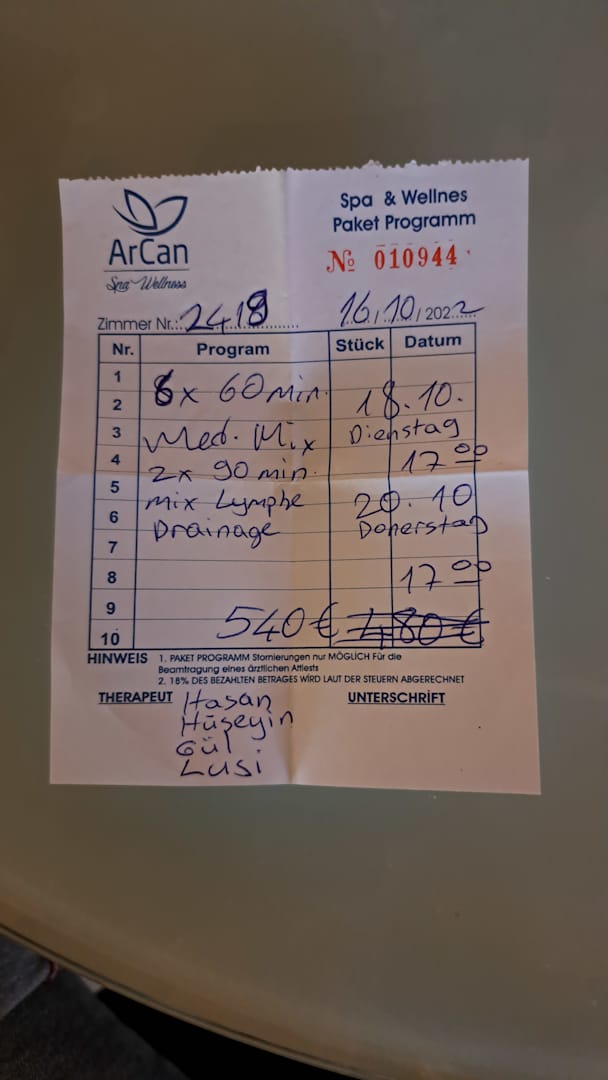 ArCan
Spa Wellness
Spa & Wellnes
Paket Programm
№ 010944
Zimmer Nr.: 2418
16/10/2022
Nr. Program Stück Datum
1
2
3
4
5
6
7
8
9
10
6x 60min.
Med. Mix
2x 90 min.
mix Lymphe
Drainage
18.10.
Dienstag
17 00
20.10
Donerstag
17 00
540€ 480€
HINWEIS 1. PAKET PROGRAMM Stornierungen nur MÖGLICH Für die
Beamtragung eines ärztlichen Attests
2. 18% DES BEZAHLTEN BETRAGES WİRD LAUT DER STEUERN ABGERECHNET
THERAPEUT
UNTERSCHRİFT
Hasan
Hüseyin
Gül
Lusi